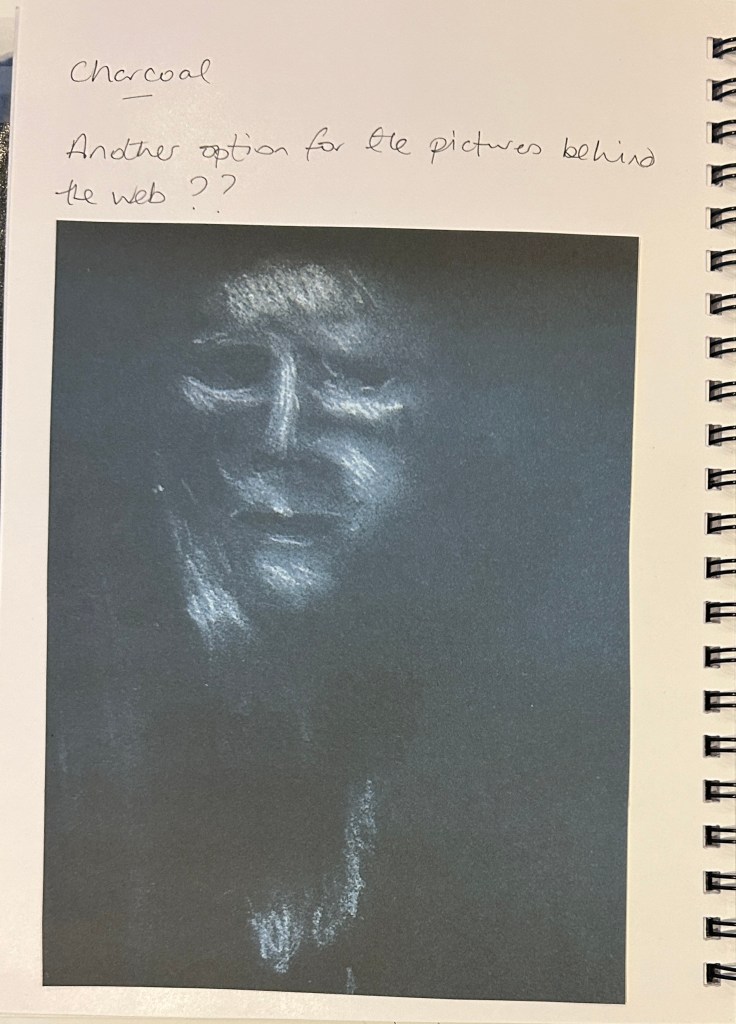 Charcoal
Another option for the pictures behind
the web ??